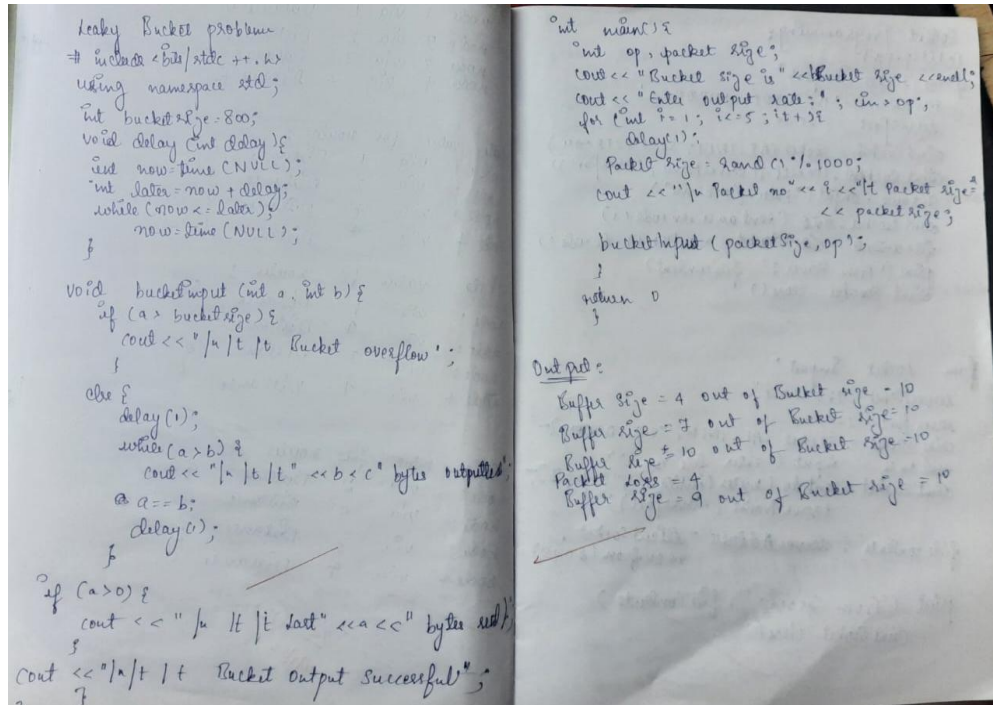 Leaky Bucket problem
# include <bits/stdc ++.h>
using namespace std;
int bucketsize = 800;
void delay (int delay) {
int now = time (NULL);
int later = now + delay;
while (now <= later);
now = time (NULL);
}
void bucketinput (int a, int b) {
if (a > bucketsize) {
cout << "/n /t /t Bucket overflow";
}
else {
delay(1);
while (a > b) {
cout << "/n /t /t" << b < c" bytes outputted";
a == b;
delay(1);
}
if (a>0) {
cout << "/n /t /t Last" <<a <<" bytes sent";
}
cout << "/n /t /t Bucket output successful";
}
int main() {
int op, packet size;
cout << "Bucket size is" << bucket size << endl;
cout << "Enter output rate:"; cin > op;
for (int i = 1; i <= 5; i++) {
delay(1);
Packet size = rand() % 1000;
cout << "/n Packet no" << i << "/t Packet size="
<< packet size;
bucketInput (packetSize, op);
}
return 0
}
Output:
Buffer Size = 4 out of Bucket size = 10
Buffer size = 7 out of Bucket size = 10
Buffer size = 10 out of Bucket size = 10
Packet Loss = 4
Buffer size = 9 out of Bucket size = 10